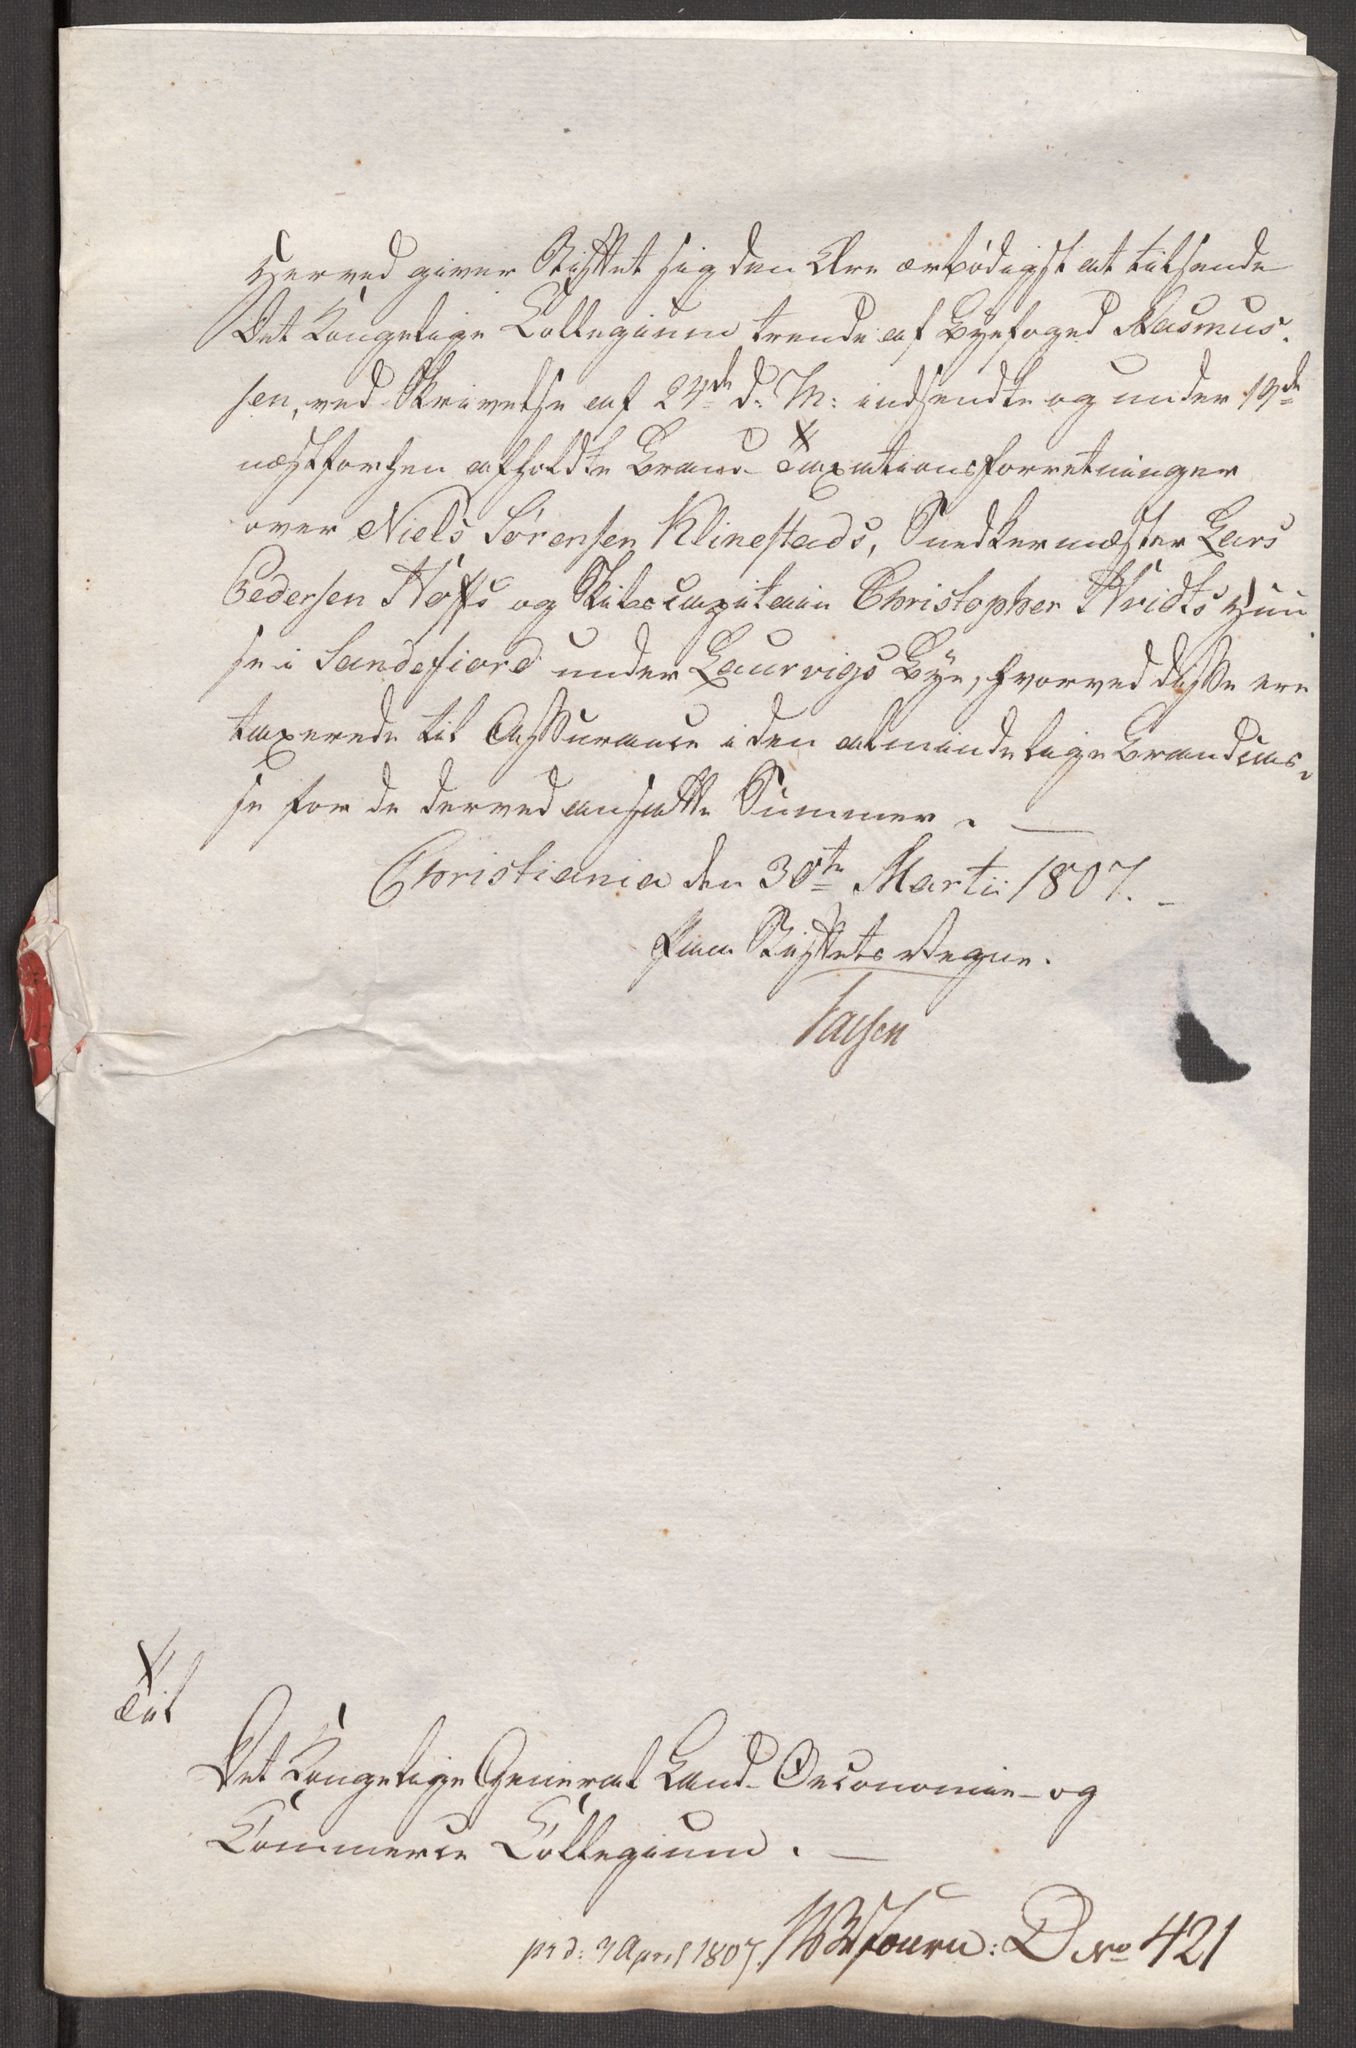 Herved giver Stiftet sig den Ære ærbödigst at tilsende
Det Kongelige Collegium trende af Byefoged Rasmus-
sen, ved Skrivelse af 24de d: M: indsendte og under 19de
næstforhen afholdte Brand-Taxationsforretninger
over Niels Sörensen Klinestads, Snedkermæster Lars
Pedersen Hoffs og Skibscapitain Christopher Hvidts Huu-
se i Sandefiord under Laurvigs Bÿe, hvorved disse ere
taxerede til Assurance i den almindelige Brandcas-
se for de derved ansatte Summer. —
Christiania den 30te Martii 1807. -
Paa Stiftets Vegne.
Til
Det Kongelige General Land-Oeconomie- og
Commerce Collegium. —
pr d: 7 April 1807. Journ: D No 421